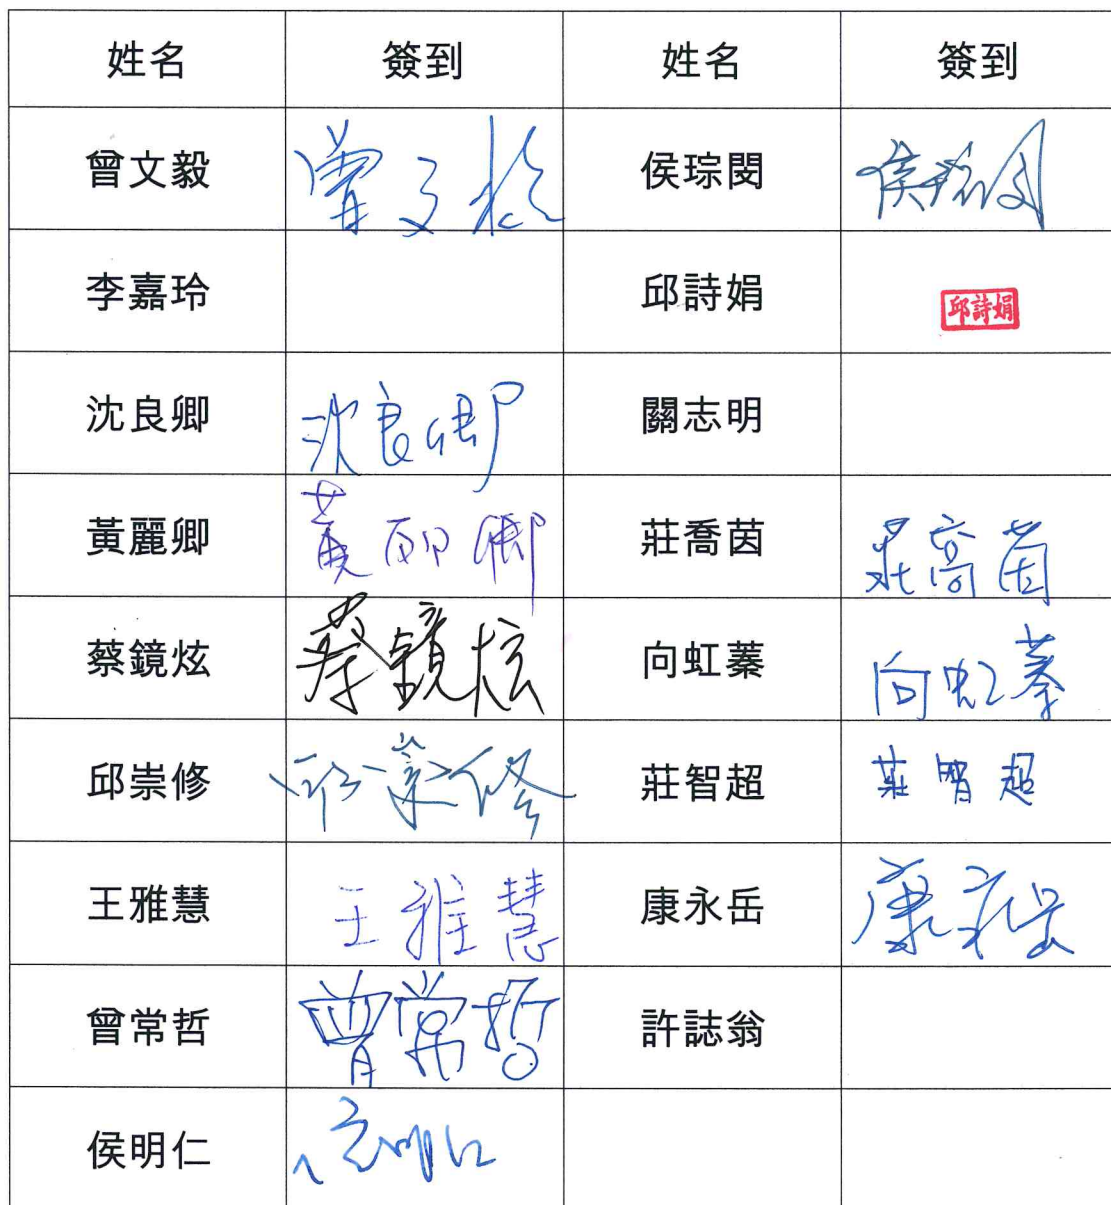 姓名 簽到 姓名 簽到
曾文毅 曾文毅 侯琮閔 侯琮閔
李嘉玲 邱詩娟 邱詩娟
沈良卿 沈良卿 關志明
黃麗卿 黃麗卿 莊喬茵 莊喬茵
蔡鏡炫 蔡鏡炫 向虹蓁 向虹蓁
邱崇修 邱崇修 莊智超 莊智超
王雅慧 王雅慧 康永岳 康永岳
曾常哲 曾常哲 許誌翁
侯明仁 侯明仁